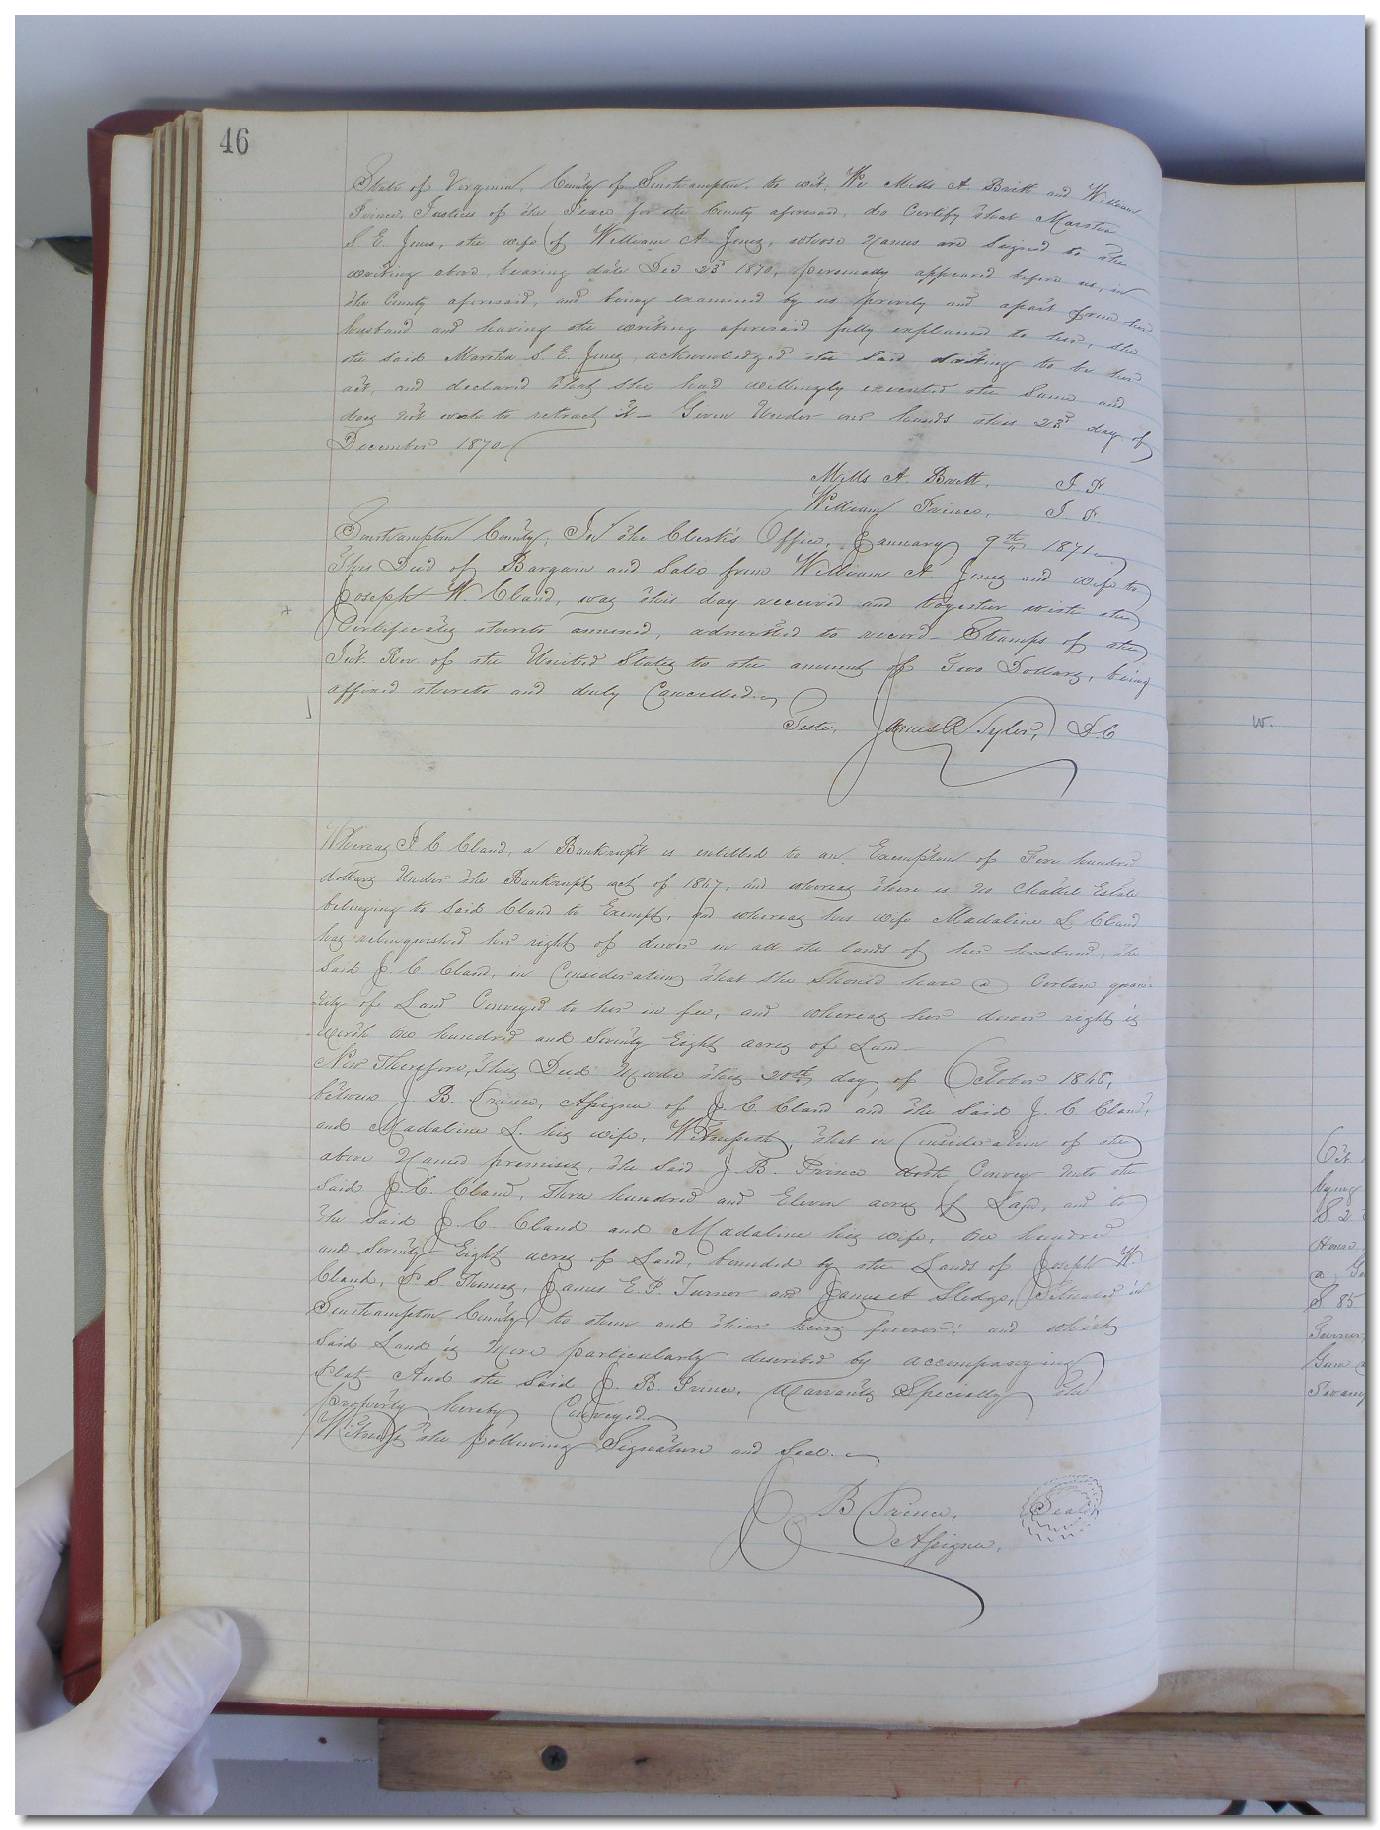 46
State of Virginia, County of Southampton, to wit, We Mills A. Britt and William
Prince, Justices of the Peace for the County aforesaid, do Certify that Marsten
S E. Jones, the wife of William A Jones, whose names are Signed to the
writing above, bearing date Dec 23d 1870, personally appeared before us, in
the County aforesaid, and being examined by us privily and apart from her
husband and having the writing aforesaid fully explained to her, she
the said S. E. Jones acknowledged the said writing to be her
act, and declared that she had willingly executed the Same and
does not wish to retract it – Given Under our hands this 23d day of
December 1870
Mills A. Britt, J. P.
William Prince, J. P.
Southampton County, In the Clerk's Office, January 9th 1871
This Deed of Bargain and Sale from William A Jones and wife to
Joseph W. Claud, was this day received and together with the
Certificates thereto annexed, admitted to record – Stamps of the
Int. Rev. of the United States to the amount of Two Dollars, being
affixed thereto and duly Cancelled.
Teste, James R Tyler, D. C
Whereas J C Claud, a Bankrupt is entitled to an Exemption of Five hundred
dollars Under the Bankrupt act of 1867, and whereas there is no Chattel Estate
belonging to Said Claud to Exempt, and whereas his wife Madaline L. Claud
has relinquished her right of dower in all the lands of her husband, the
Said J. C Claud, in Consideration that she Should have a Certain quan-
tity of Land Conveyed to her in fee, and whereas her dower right is
worth One hundred and Seventy Eight acres of Land –
Now Therefore, this Deed Made this 20th day of October 1868,
between J B. Prince, Assignee of J. C. Claud and the Said J. C Claud,
and Madaline L. his wife, Witnesseth, that in Consideration of the
above Named premises, the Said J B. Prince doth Convey Unto the
Said J. C. Claud, Three hundred and Eleven acres of Land, and to
the Said J. C. Claud and Madaline his wife, One hundred
and Seventy-Eight acres of Land, bounded by the Lands of Joseph W.
Claud, S. Thomas, James E. P. Turner and James A Sledge, Situated in
Southampton County, to them and their heirs forever: and which
Said Land is More particularly described by accompanying
Plat – And the Said J. B. Prince, Warrants Specially the
property hereby Conveyed.
Witness the following Signature and Seal. –
J B Prince, Seal
Assignee.
w.
Oct
being
$ 2
House
a
$ 85
Turner
Gum
Swamp